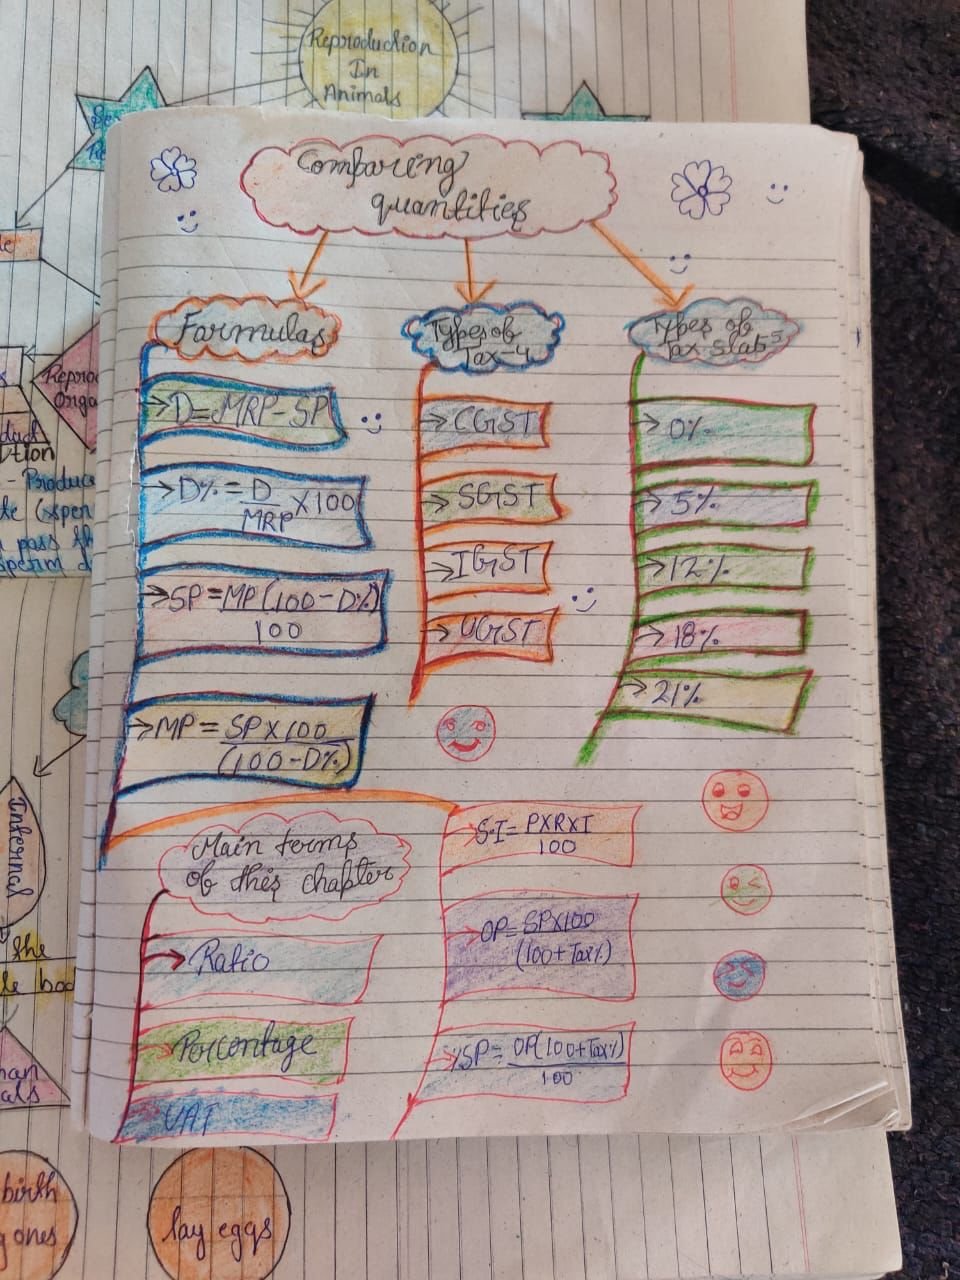 Reproduction
In
Animals
Comparing
quantities
Formulas
D=MRP-SP
D%=D/MRP×100
SP=MP(100-D%)
100
MP=SP×100
(100-D%)
Types of
Tax-4
CGST
SGST
IGST
UGST
Types of
Tax slab5
0%
5%
12%
18%
21%
Main terms
of this chapter
Ratio
Percentage
VAT
S.I=P×R×I
100
OP=SP×100
(100+Tax%)
SP=OP(100+Tax%)
100
Internal
the
birth
lay eggs